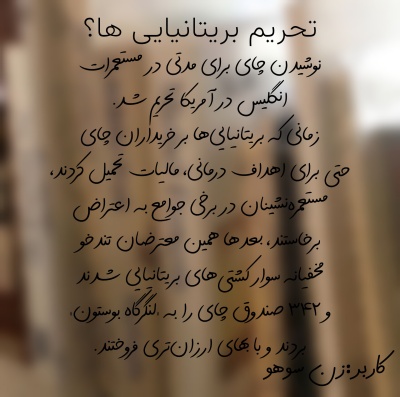 تحریم بریتانیایی ها؟
نوشیدن چای برای مدتی در مستعمرات
انگلیس در آمریکا تحریم شد.
زمانی که بریتانیایی‌ها بر خریداران چای
حتی برای اهداف درمانی، مالیات تحمیل کردند،
مستعمره‌نشینان در برخی جوامع به اعتراض
برخاستند، بعدها همین معترضان تندخو
مخفیانه سوار کشتی‌های بریتانیایی شدند
و ۳۴۲ صندوق چای را به ،لنگرگاه بوستون،
بردند و با بهای ارزان‌تری فروختند.
کاربر:زن سوهو